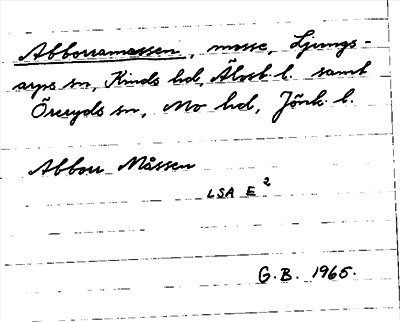 Abborramossen, mosse, Ljungs-
arps sn, Kinds hd, Älvsb. l. samt
Öreryds sn, Mo hd, Jönk. l.
Abborr Måssen
LSA E²
G.B. 1965.